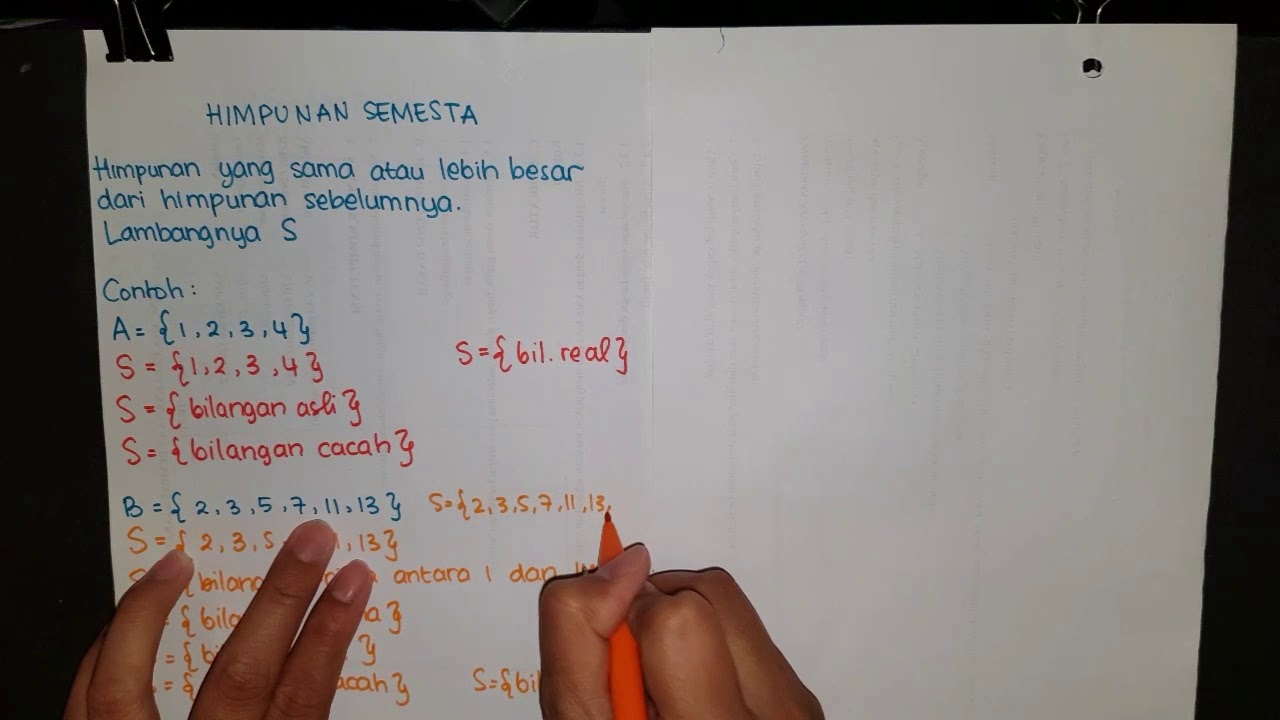 HIMPUNAN SEMESTA
Himpunan yang sama atau lebih besar
dari himpunan sebelumnya.
Lambangnya S
Contoh:
A = {1, 2, 3, 4}
S = {1, 2, 3, 4}
S = {bil. real}
S = {bilangan asli}
S = {bilangan cacah}
B = {2, 3, 5, 7, 11, 13}
S = {2, 3, 5, 7, 11, 13,
S = { 2, 3, 5 , 13}
antara 1 dan
}
}
cacah}
S={bil